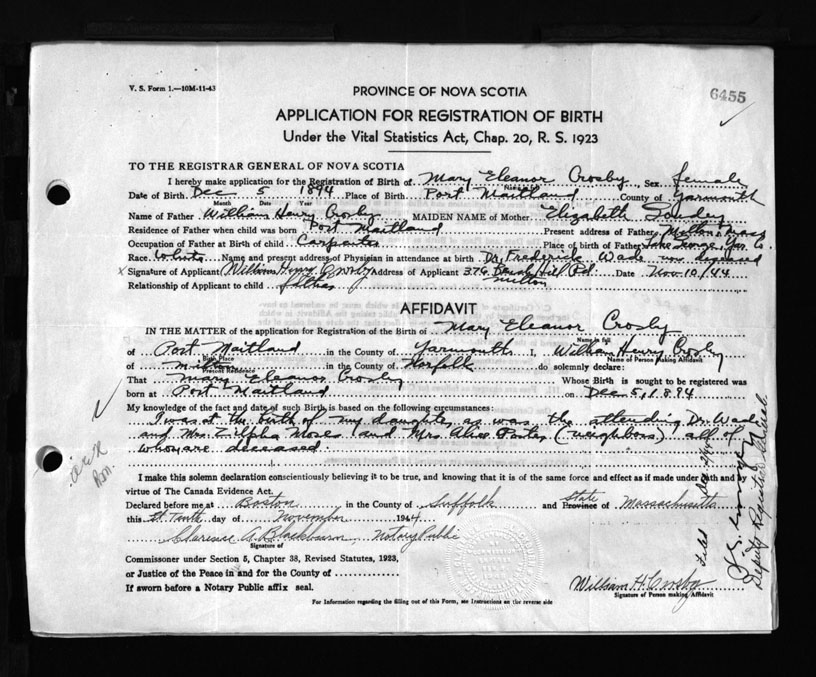 V. S. Form 1.—10M-11-43
PROVINCE OF NOVA SCOTIA
6455
APPLICATION FOR REGISTRATION OF BIRTH
Under the Vital Statistics Act, Chap. 20, R. S. 1923
TO THE REGISTRAR GENERAL OF NOVA SCOTIA
I hereby make application for the Registration of Birth of Mary Eleanor Crosby, Sex female
Date of Birth Dec 5 1894 Place of Birth Port Maitland County of Yarmouth
Month Day Year
Name of Father William Henry Crosby MAIDEN NAME of Mother Elizabeth
Residence of Father when child was born Port Maitland Present address of Father Milton, Mass
Occupation of Father at Birth of child Carpenter Place of birth of Father Lake George, Yar. Co.
Race White Name and present address of Physician in attendance at birth Dr. Frederick Wade now deceased
x Signature of Applicant William Henry Crosby Address of Applicant 376 Brush Hill Rd Date Nov 10/44
Relationship of Applicant to child father Milton
AFFIDAVIT
IN THE MATTER of the application for Registration of the Birth of Mary Eleanor Crosby
Name in full
of Port Maitland in the County of Yarmouth I, William Henry Crosby
Birth Place Name of Person Making Affidavit
of Milton in the County of Norfolk do solemnly declare:
Present Residence
That Mary Eleanor Crosby Whose Birth is sought to be registered was
born at Port Maitland on Dec 5, 1894
My knowledge of the fact and date of such Birth is based on the following circumstances:
I was at the birth of my daughter as was the attending Dr. Wade
and Mrs. Zilpha Moses and Mrs. Alice Porter (neighbors) all of
whom are deceased.
I make this solemn declaration conscientiously believing it to be true, and knowing that it is of the same force and effect as if made under oath and
virtue of The Canada Evidence Act.
Declared before me at Boston in the County of Suffolk and State Province of Massachusetts
this Tenth day of November 1944
Clarence A. Blackburn Notary Public
Signature of
Commissoner under Section 5, Chapter 38, Revised Statutes, 1923,
or Justice of the Peace in and for the County of
If sworn before a Notary Public affix seal.
William H. Crosby
Signature of Person making Affidavit
For Information regarding the filling out of this Form, see Instructions on the reverse side
Deputy Registrar General